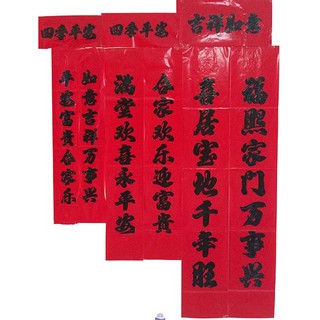 四季平安
四季平安
吉祥如意
如意吉祥万事兴
平安富貴合家乐
合家欢乐迎富貴
满堂欢喜永平安
福照家门万事兴
喜居宝地千年旺